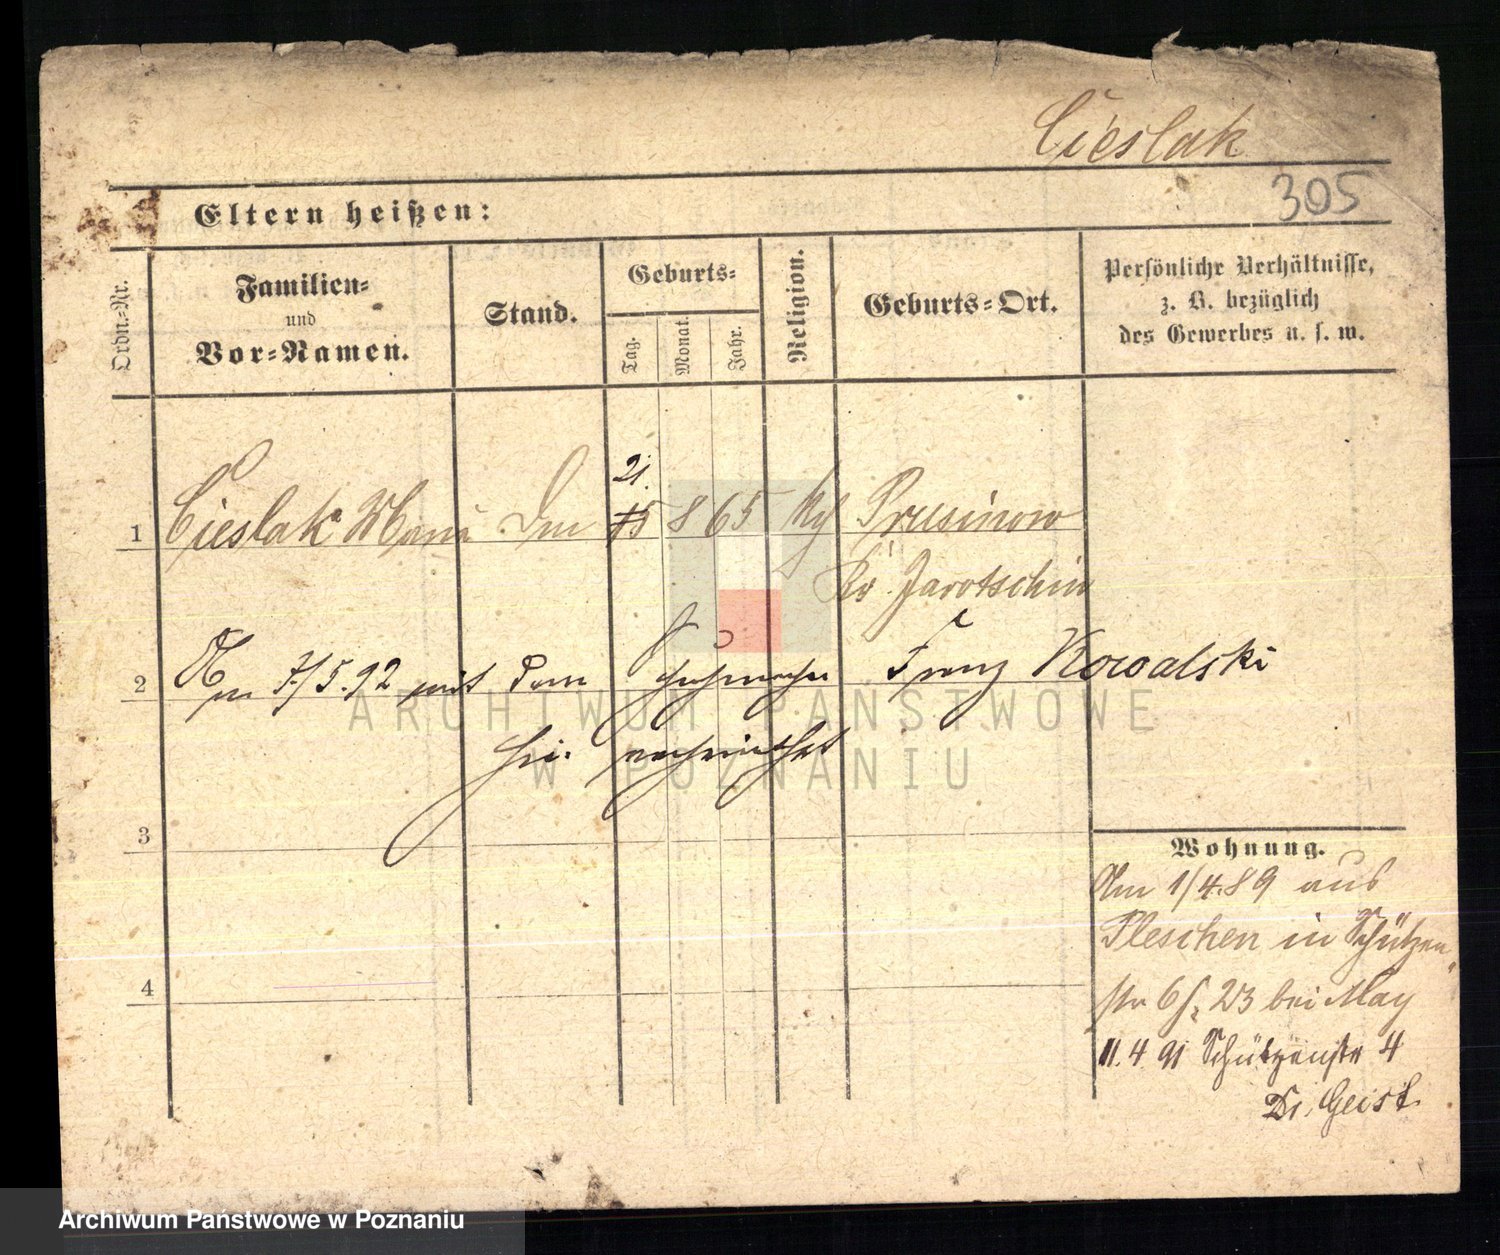 Cieslak
305
Eltern heißen:
Ordn.-Nr.
Familien-
und
Vor-Namen.
Stand.
Geburts-
Tag.
Monat.
Jahr.
Religion.
Geburts-Ort.
Persönliche Verhältnisse,
z. B. bezüglich
des Gewerbes u. s. w.
21.
1 Cieslak Maria 15 8 65 Prusinow
Kr. Jarotschin
2 Am 7/5.92 mit dem Franz Kowalski
hier verheirathet
3
Wohnung.
Am 1/4.89 aus
Pleschen in Schützen
str 6 23 bei May
4
11.4 91 Schützenstr 4
Dr. Geist
ARCHIWUM PAŃSTWOWE
W POZNANIU
Archiwum Państwowe w Poznaniu